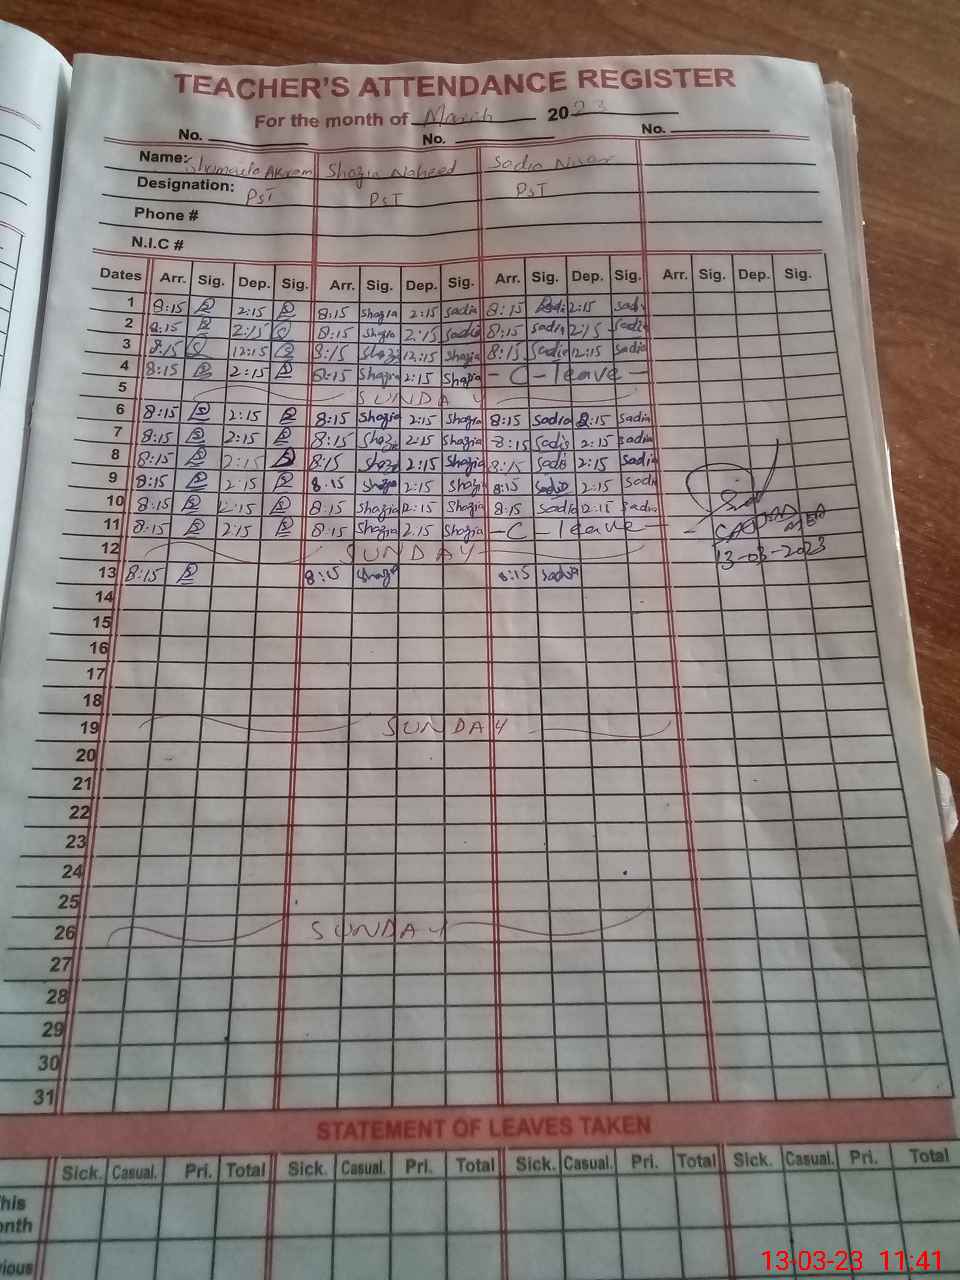 TEACHER'S ATTENDANCE REGISTER
For the month of March 2023
No. No. No.
Name: Shumaila Akram Shazia Naheed Sadia Nisar
Designation: PST PST PST
Phone #
N.I.C #
Dates Arr. Sig. Dep. Sig. Arr. Sig. Dep. Sig. Arr. Sig. Dep. Sig. Arr. Sig. Dep. Sig.
1 8:15 2:15 8:15 Shazia 2:15 sadia 8:15 Sadia 2:15 sadia
2 8:15 2:15 8:15 Shazia 2:15 sadia 8:15 sadia 2:15 sadia
3 8:15 12:15 8:15 Shazia 12:15 Shazia 8:15 Sadia 12:15 sadia
4 8:15 2:15 8:15 Shazia 2:15 Shazia - C - leave -
5 SUNDAY
6 8:15 2:15 8:15 Shazia 2:15 Shazia 8:15 Sadia 2:15 Sadia
7 8:15 2:15 8:15 Shazia 2:15 Shazia 8:15 Sadia 2:15 Sadia
8 8:15 2:15 8:15 Shazia 2:15 Shazia 8:15 Sadia 2:15 Sadia
9 8:15 2:15 8:15 Shazia 2:15 Shazia 8:15 Sadia 2:15 Sadia
10 8:15 2:15 8:15 Shazia 2:15 Shazia 8:15 Sadia 2:15 Sadia
11 8:15 2:15 8:15 Shazia 2:15 Shazia - C - leave -
12 SUNDAY
13-03-2023
13 8:15 8:15 Shazia 8:15 Sadia
14
15
16
17
18
19 SUNDAY
20
21
22
23
24
25
26 SUNDAY
27
28
29
30
31
STATEMENT OF LEAVES TAKEN
Sick. Casual. Pri. Total Sick. Casual. Pri. Total Sick. Casual. Pri. Total Sick. Casual. Pri. Total
This
onth
vious
13-03-23 11:41